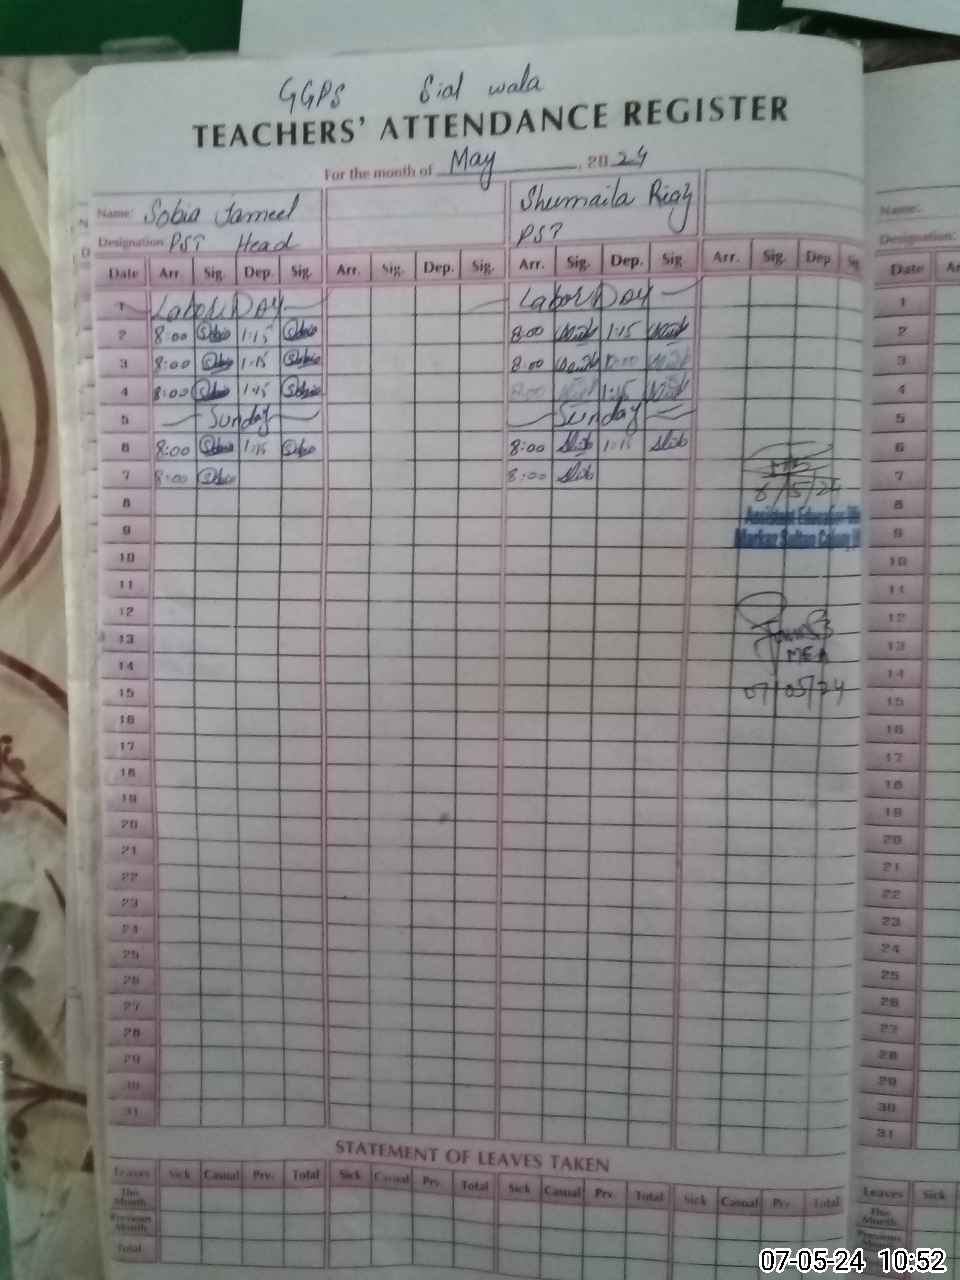 GGPS Sial wala
TEACHERS' ATTENDANCE REGISTER
For the month of May, 2024
Name: Sobia Jameel Shumaila Riaz
Designation PST Head PST
Date Arr. Sig. Dep. Sig. Arr. Sig. Dep. Sig. Arr. Sig. Dep. Sig Arr. Sig. Dep Sig
1 Labor Day Labor Day
2 8:00 1:15 8:00 1:15
3 8:00 1:15 8:00
4 8:00 1:15 8:00 1:15
5 Sunday Sunday
6 8:00 1:15 8:00 1:15
7 8:00 8:00
6/5/24
8
Assistant Education
9
Markaz Sultan Colony
10
11
12
13
MEA
14
07/05/24
15
16
17
18
19
20
21
22
23
24
25
26
27
28
29
30
31
STATEMENT OF LEAVES TAKEN
Leaves Sick Casual Prv. Total Sick Casual Prv. Total Sick Casual Prv. Total Sick Casual Prv Total
This Month
Previous Month
Total
Name:
Designation:
Date
1
2
3
4
5
6
7
8
9
10
11
12
13
14
15
16
17
18
19
20
21
22
23
24
25
26
27
28
29
30
31
Leaves Sick
This Month
Previous Month
07-05-24 10:52